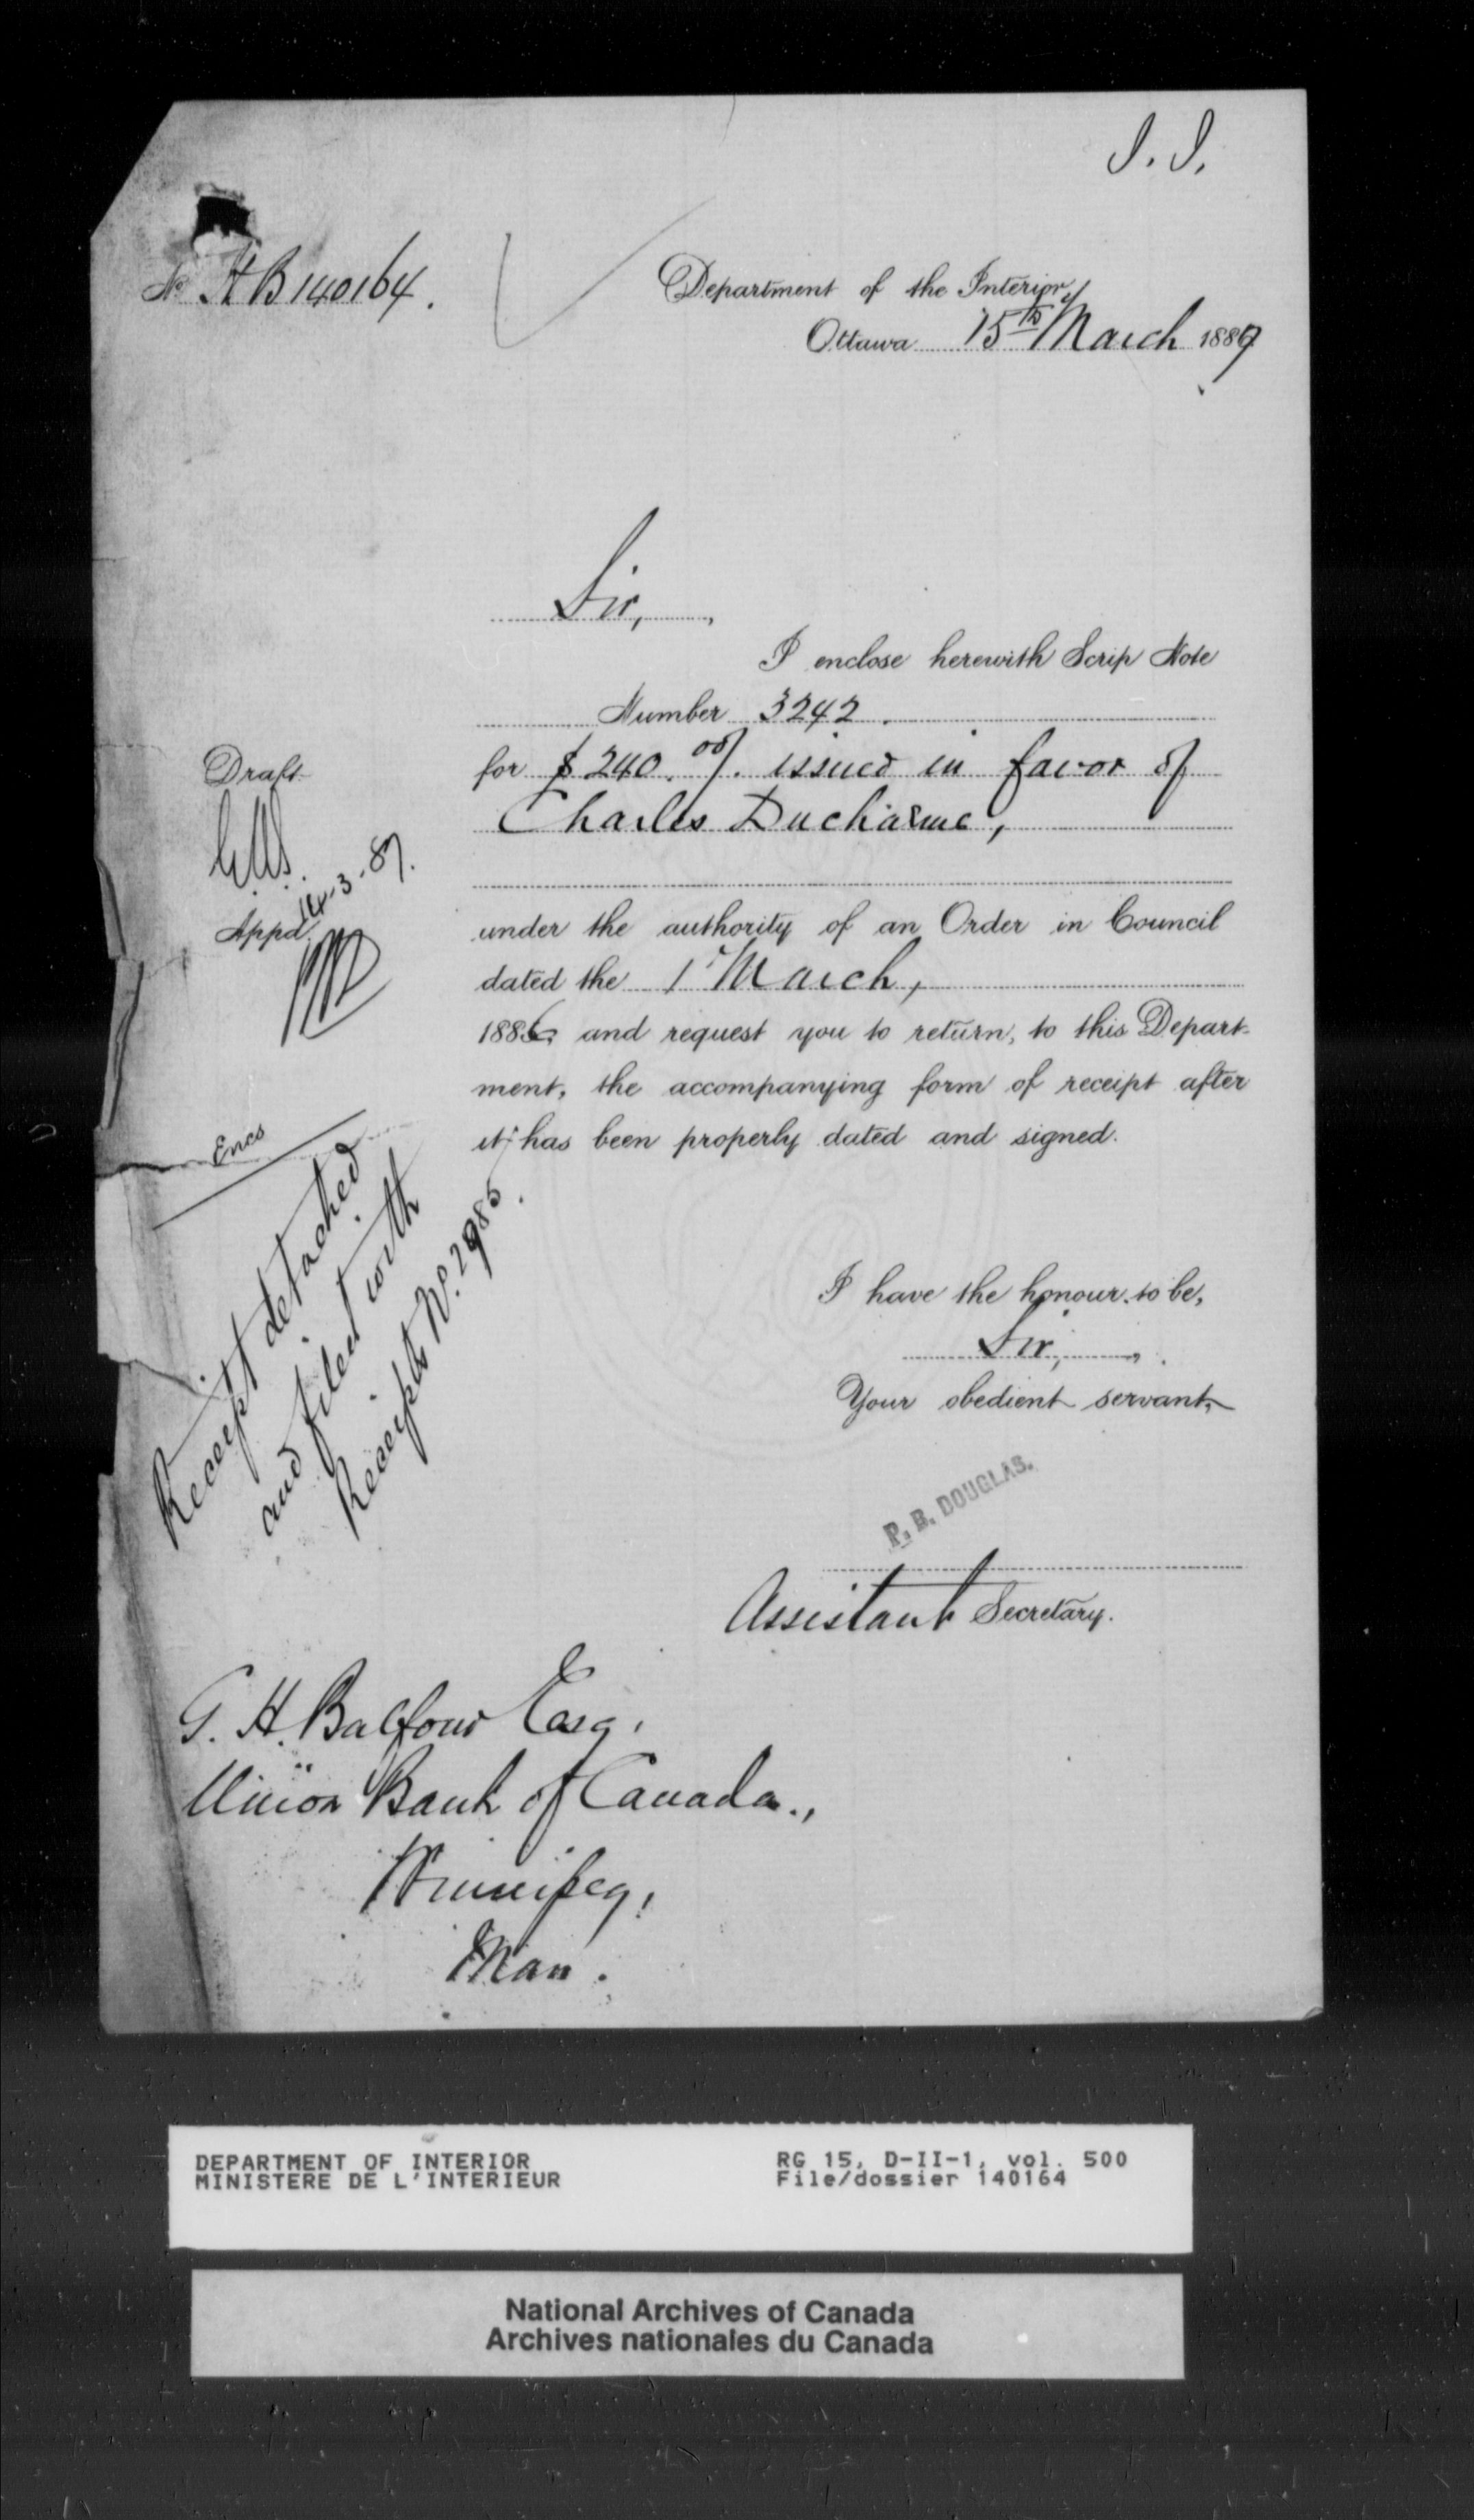 J. J.
No HB 140164.
Department of the Interior,
Ottawa 15th March 1887
Sir,
I enclose herewith Scrip Note
Number 3242.
for $240.00/. issued in favor of
Charles Ducharme,
under the authority of an Order in Council
dated the 1st March,
1886 and request you to return, to this Depart-
ment, the accompanying form of receipt after
it has been properly dated and signed.
Draft
14-3-87.
Appd
Encs
Receipt detached
and filed with
Receipt No. 2985.
I have the honour to be,
Sir,
Your obedient servant,
P. B. DOUGLAS.
Assistant Secretary.
G. H. Balfour Esq.
Union Bank of Canada.,
Winnipeg,
Man.
DEPARTMENT OF INTERIOR
MINISTERE DE L'INTERIEUR
RG 15, D-II-1, vol. 500
File/dossier 140164
National Archives of Canada
Archives nationales du Canada